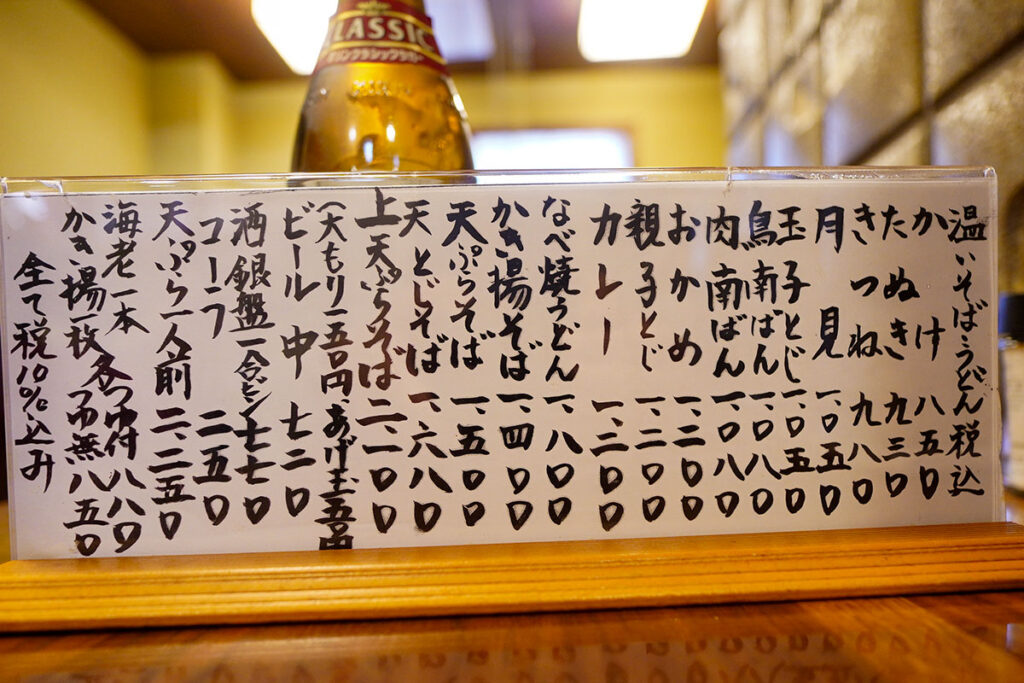 CLASSIC
キリンクラシックラガー
温いそば・うどん 税込
かけ 八五〇
たぬき 九三〇
きつね 九八〇
月見 一、〇五〇
玉子とじ 一、〇五〇
鳥南ばん 一、〇八〇
肉南ばん 一、〇八〇
おかめ 一、二〇〇
親子とじ 一、二〇〇
カレー 一、二〇〇
なべ焼うどん 一、八〇〇
かき揚そば 一、四〇〇
天ぷらそば 一、五〇〇
天とじそば 一、六八〇
上天ぷらそば 二、一〇〇
(大もり一五〇円、あげ玉五〇円
ビール中 七二〇
酒銀盤一合ビン七七〇
コーラ 二五〇
天ぷら一人前 二、二五〇
海老一本 天つゆ付 八八〇
かき揚一枚 つゆ無 八五〇
全て税10%込み